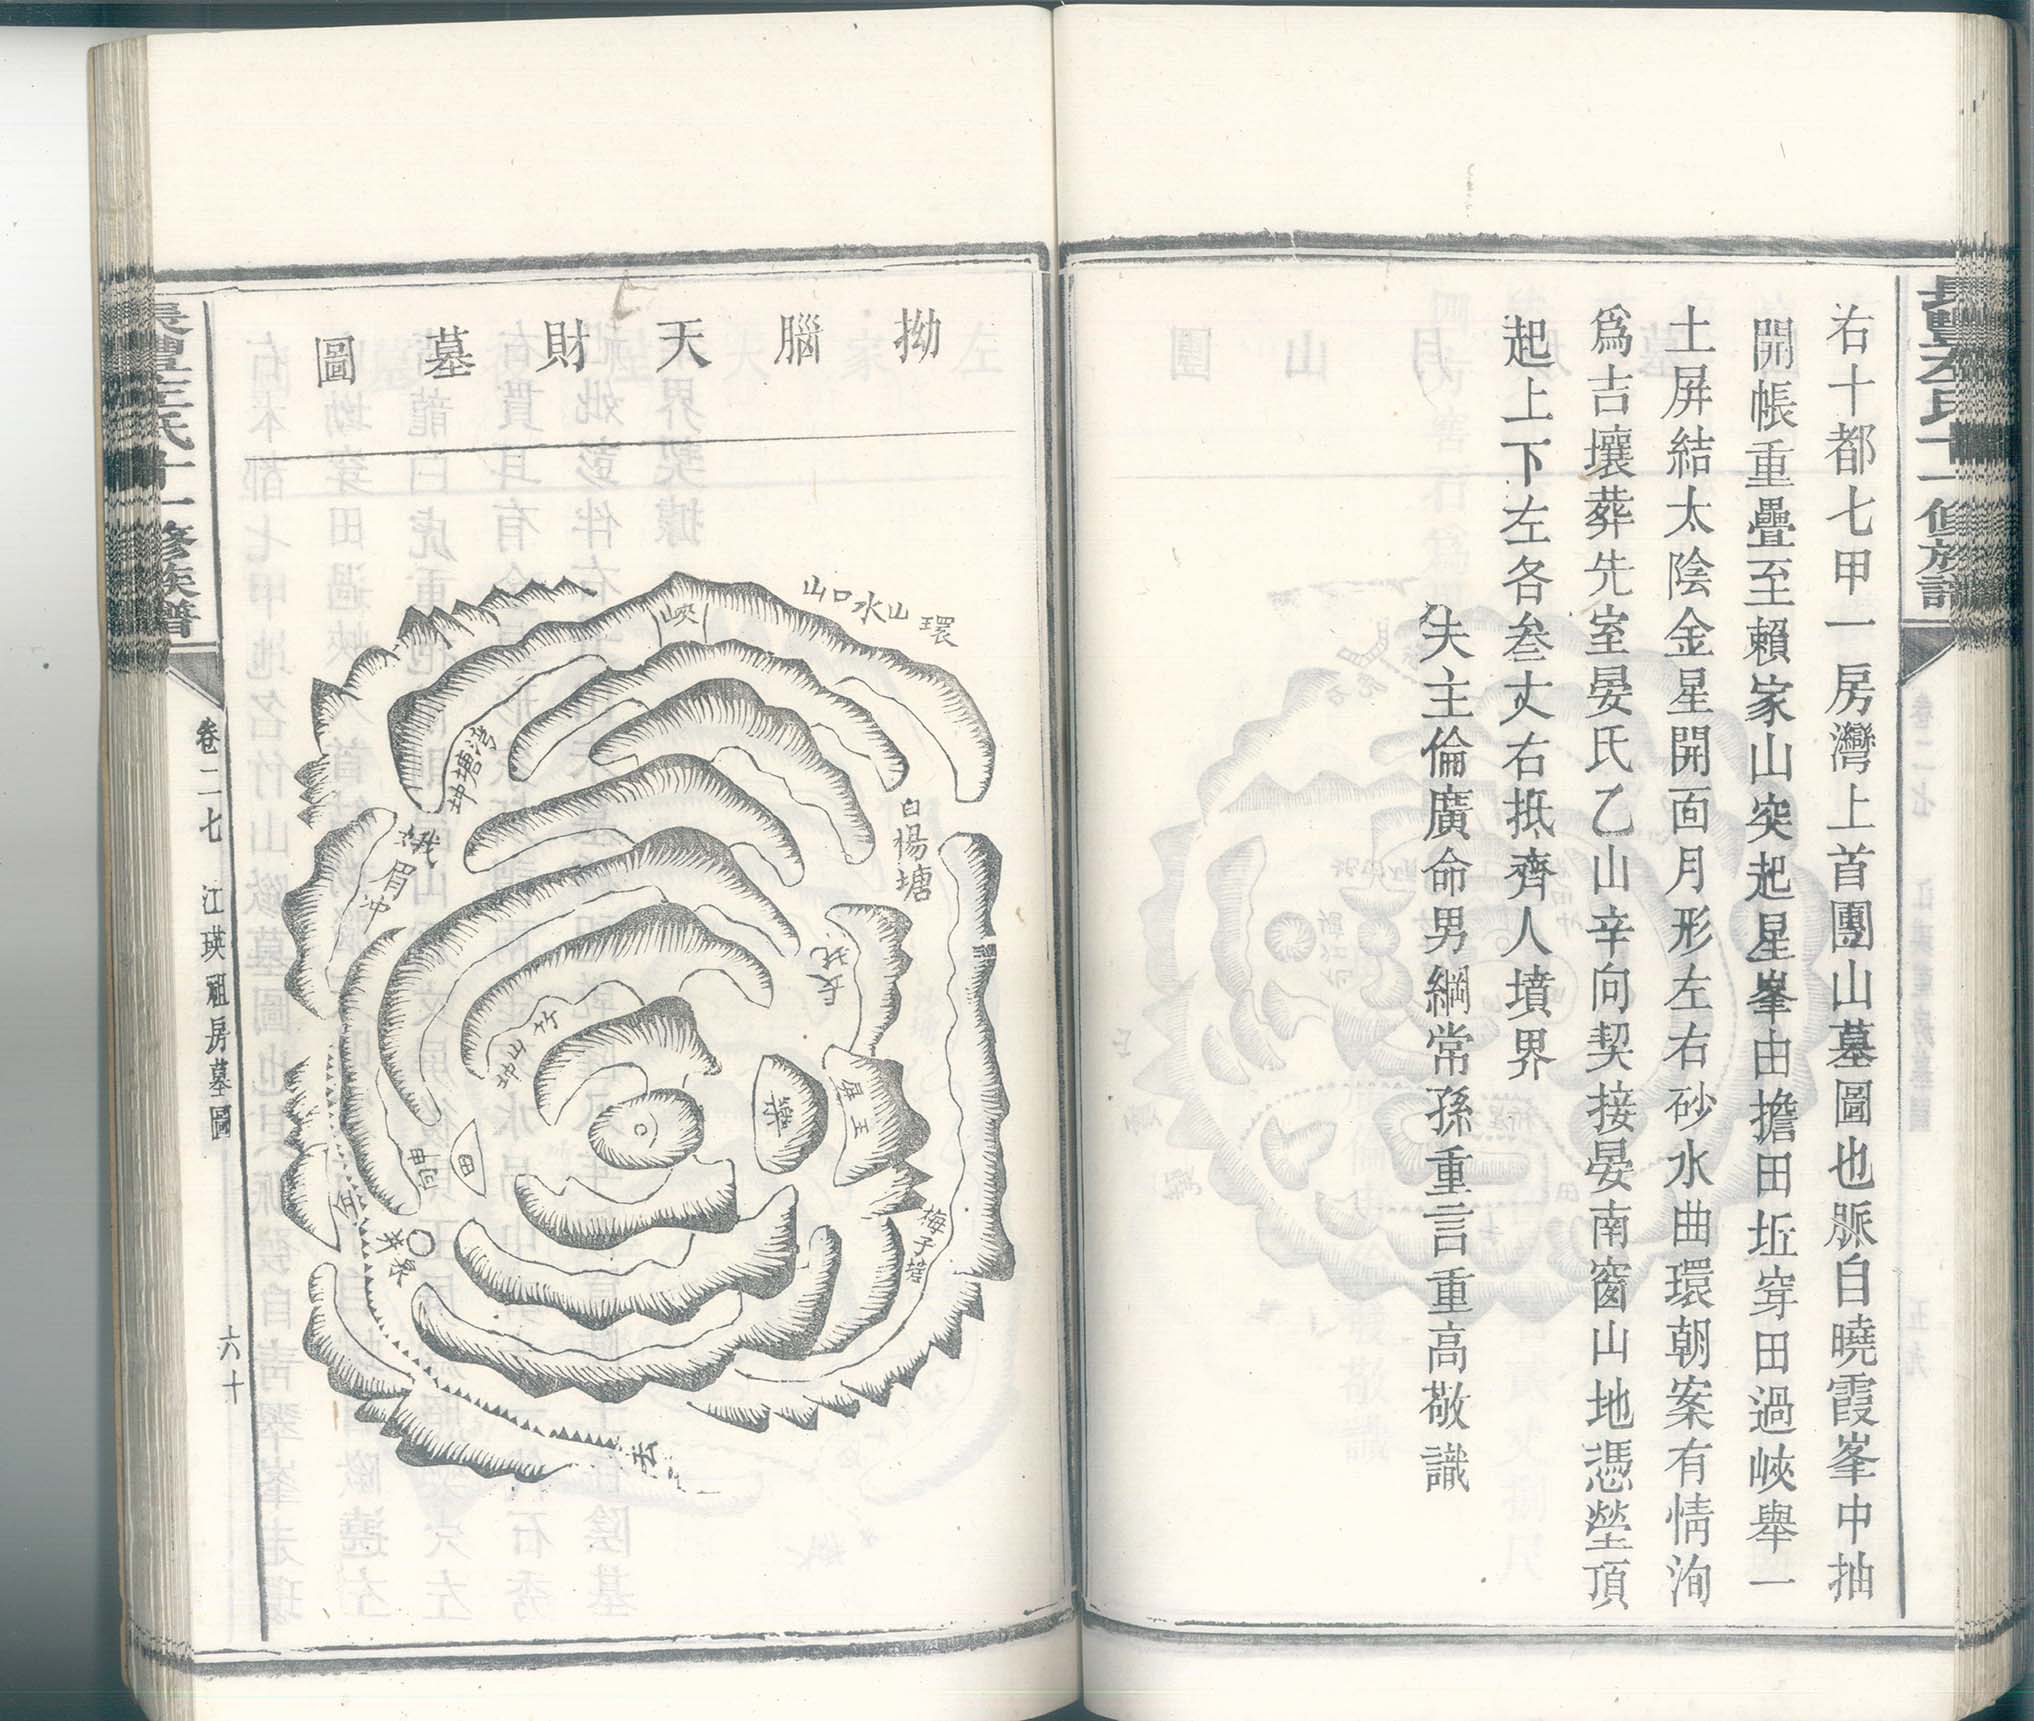 右十都七甲一房灣上首團山墓圖也脈自曉霞峯中抽
開帳重疊至賴家山突起星峯由擔田坵穿田過峽舉一
土屛結太陰金星開面月形左右砂水曲環朝案有情洵
爲吉壤葬先室晏氏乙山辛向契接晏南窗山地憑塋頂
起上下左各叁丈右抵齊人墳界
夫主倫廣命男綱常孫重言重高敬識
拗腦天財墓圖
環山水口山
峽
白楊塘
灣塘神
峨眉冲
竹山冲
屏玉
梅子塔
田
田
卷二七
江瑛祖房墓圖
六十
左氏十一修族譜